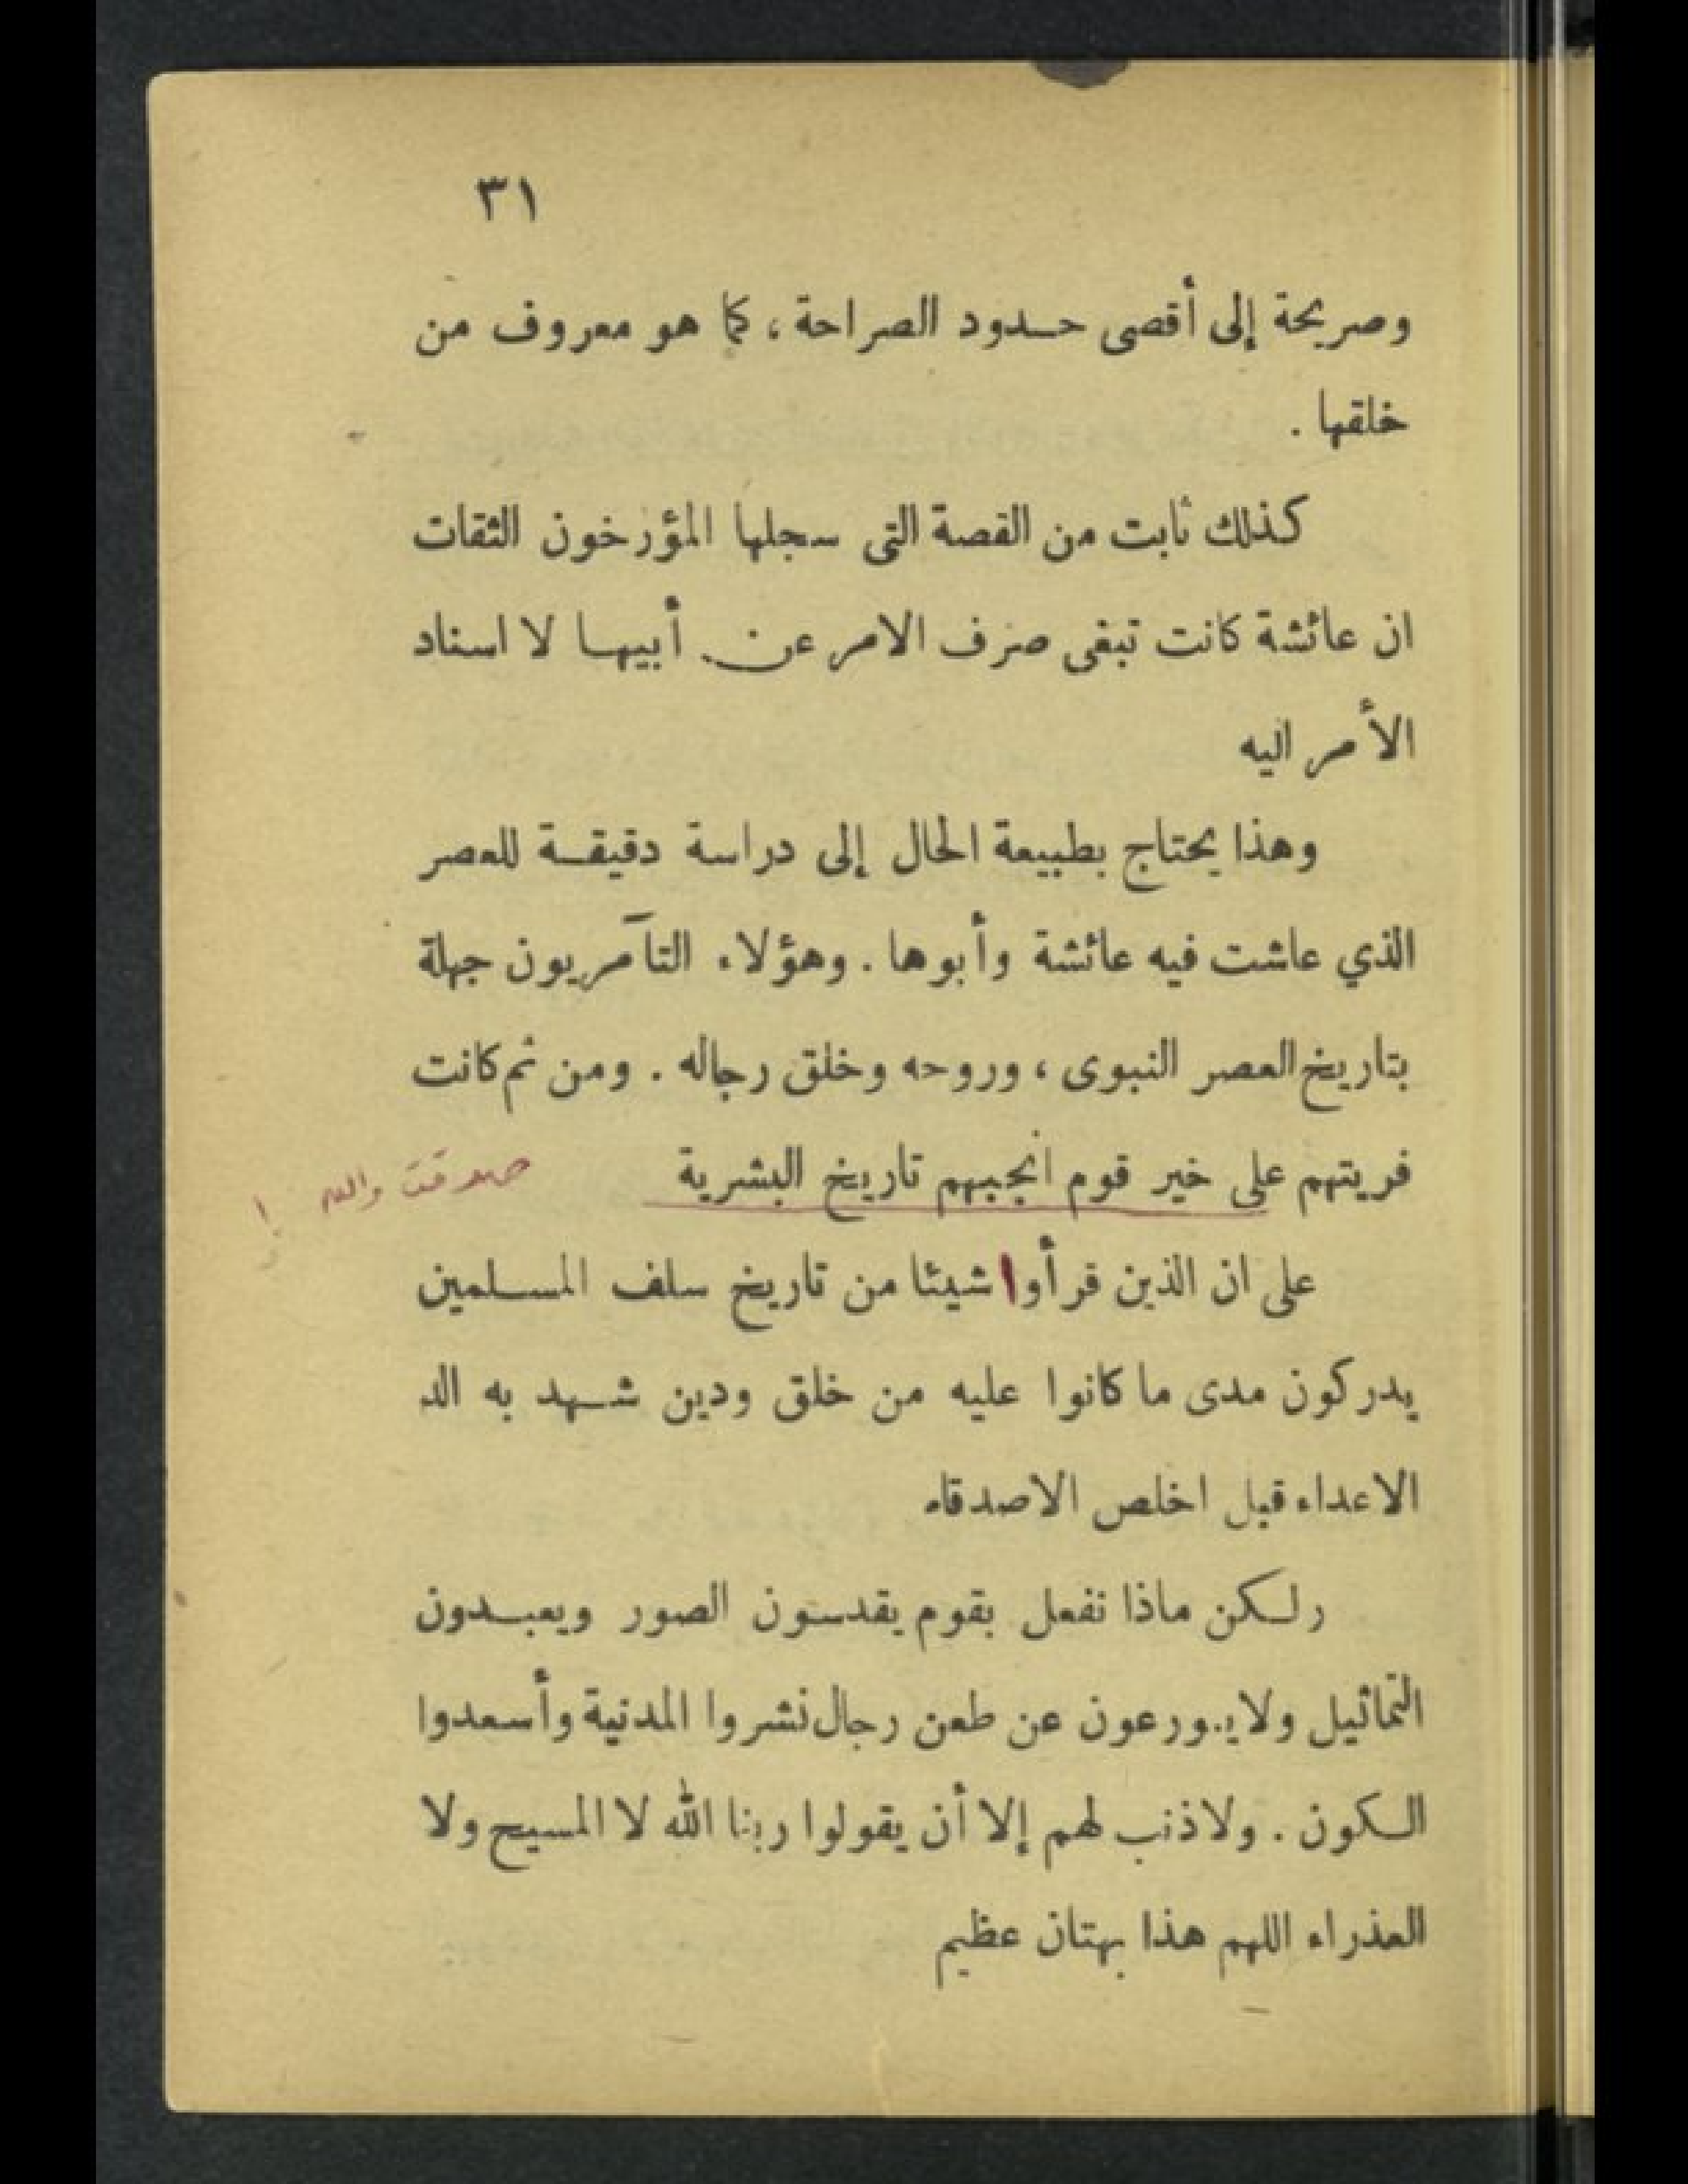 ٣١
وصريحة إلى أقصى حدود الصراحة ، كما هو معروف من
خلقها .
كذلك ثابت من القصة التى سجلها المؤرخون الثقات
ان عائشة كانت تبغى صرف الامر عن أبيها لا اسناد
الأمر اليه
وهذا يحتاج بطبيعة الحال إلى دراسة دقيقة للعصر
الذي عاشت فيه عائشة وأبوها . وهؤلاء التآمريون جهلة
بتاريخ العصر النبوى ، وروحه وخلق رجاله . ومن ثم كانت
فريتهم على خير قوم انجبهم تاريخ البشرية صدقت والله !
على ان الذين قرأوا شيئا من تاريخ سلف المسلمين
يدركون مدى ما كانوا عليه من خلق ودين شهد به الد
الاعداء قبل اخلص الاصدقاء
ولكن ماذا نفعل بقوم يقدسون الصور ويعبدون
التماثيل ولا يورعون عن طعن رجال نشروا المدنية وأسعدوا
الكون . ولا ذنب لهم إلا أن يقولوا ربنا الله لا المسيح ولا
العذراء اللهم هذا بهتان عظيم